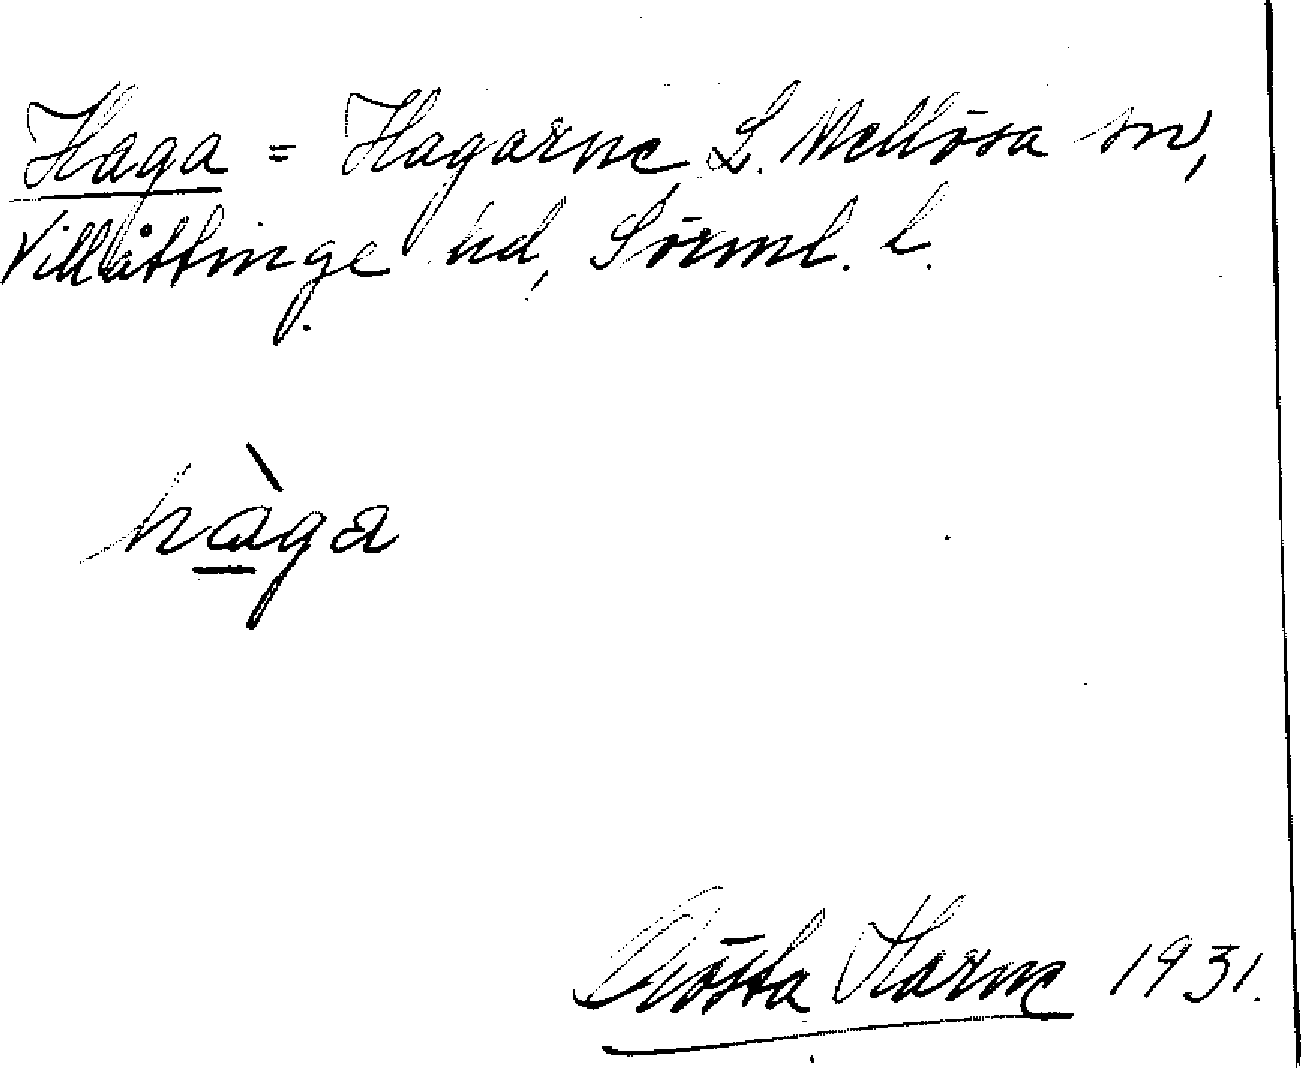 Haga = Hagarne, L. Mellösa sn,
Villåttinge hd, Sörml. l.
hàga
Gösta Harne 1931.